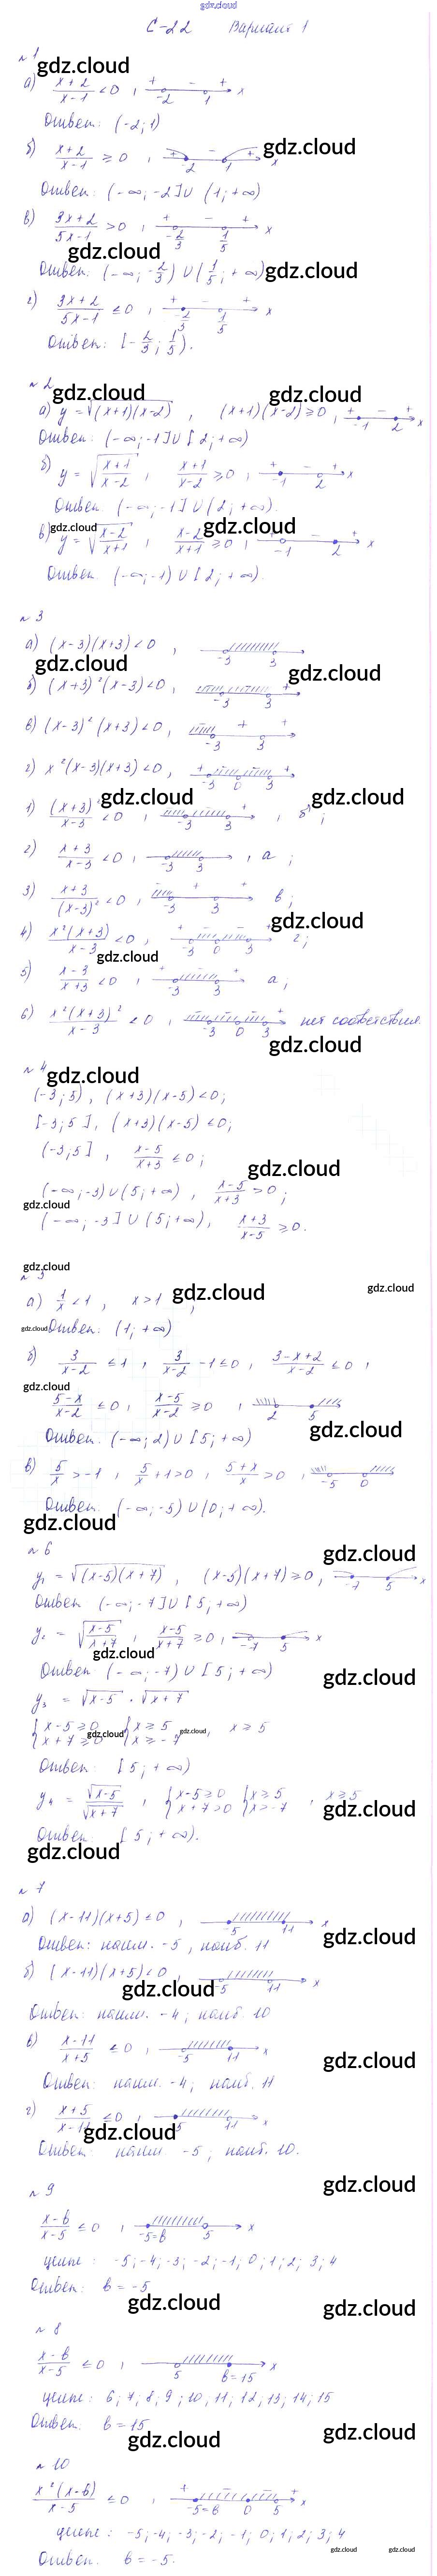 gdz.cloud
С-22 Вариант 1
№1
gdz.cloud
а) (x+2)/(x-1) < 0 , + - + -2 1 x
Ответ: (-2; 1)
б) (x+2)/(x-1) ≥ 0 , + - + -2 1 x gdz.cloud
Ответ: (-∞; -2] ∪ (1; +∞)
в) (3x+2)/(5x-1) > 0 , + - + -2/3 1/5 x
gdz.cloud
Ответ: (-∞; -2/3) ∪ (1/5; +∞) gdz.cloud
г) (3x+2)/(5x-1) ≤ 0 , + - + -2/3 1/5 x
Ответ: [-2/3; 1/5).
№2 gdz.cloud gdz.cloud
а) y = √((x+1)(x-2)) , (x+1)(x-2) ≥ 0 , + - + -1 2 x
Ответ: (-∞; -1] ∪ [2; +∞)
б) y = √((x+1)/(x-2)) , (x+1)/(x-2) ≥ 0 , + - + -1 2 x
Ответ: (-∞; -1] ∪ (2; +∞).
gdz.cloud gdz.cloud
в) y = √((x-2)/(x+1)) , (x-2)/(x+1) ≥ 0 , + - + -1 2 x
Ответ: (-∞; -1) ∪ [2; +∞).
№3
а) (x-3)(x+3) < 0 , -3 3
gdz.cloud gdz.cloud
б) (x+3)²(x-3) < 0 , - - + -3 3
в) (x-3)²(x+3) < 0 , - + + -3 3
г) x²(x-3)(x+3) < 0 , + - - + -3 0 3
gdz.cloud gdz.cloud
1) (x+3)²/(x-3) < 0 , - - + -3 3 , б ;
2) (x+3)/(x-3) < 0 , -3 3 , а ;
3) (x+3)/(x-3)² < 0 , - + + -3 3 в ;
gdz.cloud
4) x²(x+3)/(x-3) < 0 , + - - + -3 0 3 г ;
gdz.cloud
5) (x-3)/(x+3) < 0 , + - + -3 3 а ;
6) x²(x+3)²/(x-3) < 0 , - - - + -3 0 3 нет соответствия
gdz.cloud
№4 gdz.cloud
(-3; 5) , (x+3)(x-5) < 0;
[-3; 5] , (x+3)(x-5) ≤ 0;
(-3; 5] , (x-5)/(x+3) ≤ 0 ;
gdz.cloud
(-∞; -3) ∪ (5; +∞) , (x-5)/(x+3) > 0 ;
gdz.cloud
(-∞; -3] ∪ (5; +∞) , (x+3)/(x-5) ≥ 0.
gdz.cloud
№5
gdz.cloud gdz.cloud
а) 1/x < 1 , x > 1 ,
gdz.cloud
Ответ: (1; +∞)
б) 3/(x-2) ≤ 1 , 3/(x-2) - 1 ≤ 0 , (3-x+2)/(x-2) ≤ 0 ,
gdz.cloud
(5-x)/(x-2) ≤ 0 , (x-5)/(x-2) ≥ 0 , 2 5
gdz.cloud
Ответ: (-∞; 2) ∪ [5; +∞)
в) 5/x > -1 , 5/x + 1 > 0 , (5+x)/x > 0 , -5 0
Ответ: (-∞; -5) ∪ (0; +∞).
gdz.cloud
№6 gdz.cloud
y₁ = √((x-5)(x+7)) , (x-5)(x+7) ≥ 0 , -7 5 x
Ответ (-∞; -7] ∪ [5; +∞)
y₂ = √((x-5)/(x+7)) , (x-5)/(x+7) ≥ 0 , -7 5 x
gdz.cloud
Ответ (-∞; -7) ∪ [5; +∞) gdz.cloud
y₃ = √(x-5) · √(x+7)
{x-5 ≥ 0 {x ≥ 5 x ≥ 5
{x+7 ≥ 0 {x ≥ -7
gdz.cloud gdz.cloud
Ответ: [5; +∞)
y₄ = √(x-5)/√(x+7) , {x-5 ≥ 0 {x ≥ 5 , x ≥ 5
{x+7 > 0 {x > -7
gdz.cloud
Ответ: [5; +∞).
gdz.cloud
№7
а) (x-11)(x+5) ≤ 0 , -5 11 x
gdz.cloud
Ответ: наим. -5 , наиб. 11
б) (x-11)(x+5) < 0 , -5 11 x
gdz.cloud
Ответ: наим. -4; наиб. 10
в) (x-11)/(x+5) ≤ 0 , -5 11 x
gdz.cloud
Ответ: наим. -4; наиб. 11
г) (x+5)/(x-11) ≤ 0 , -5 11 x
gdz.cloud
Ответ: наим -5; наиб. 10.
№9 gdz.cloud
(x-b)/(x-5) ≤ 0 , -5=b 5 x
целые: -5; -4; -3; -2; -1; 0; 1; 2; 3; 4
Ответ: b = -5
gdz.cloud gdz.cloud
№8
(x-b)/(x-5) ≤ 0 , 5 b=15 x
целые: 6; 7; 8; 9; 10; 11; 12; 13; 14; 15
Ответ: b = 15
gdz.cloud gdz.cloud
№10
x²(x-b)/(x-5) ≤ 0 , + - - + -5=b 0 5 x
целые: -5; -4; -3; -2; -1; 0; 1; 2; 3; 4
gdz.cloud gdz.cloud
Ответ. b = -5.